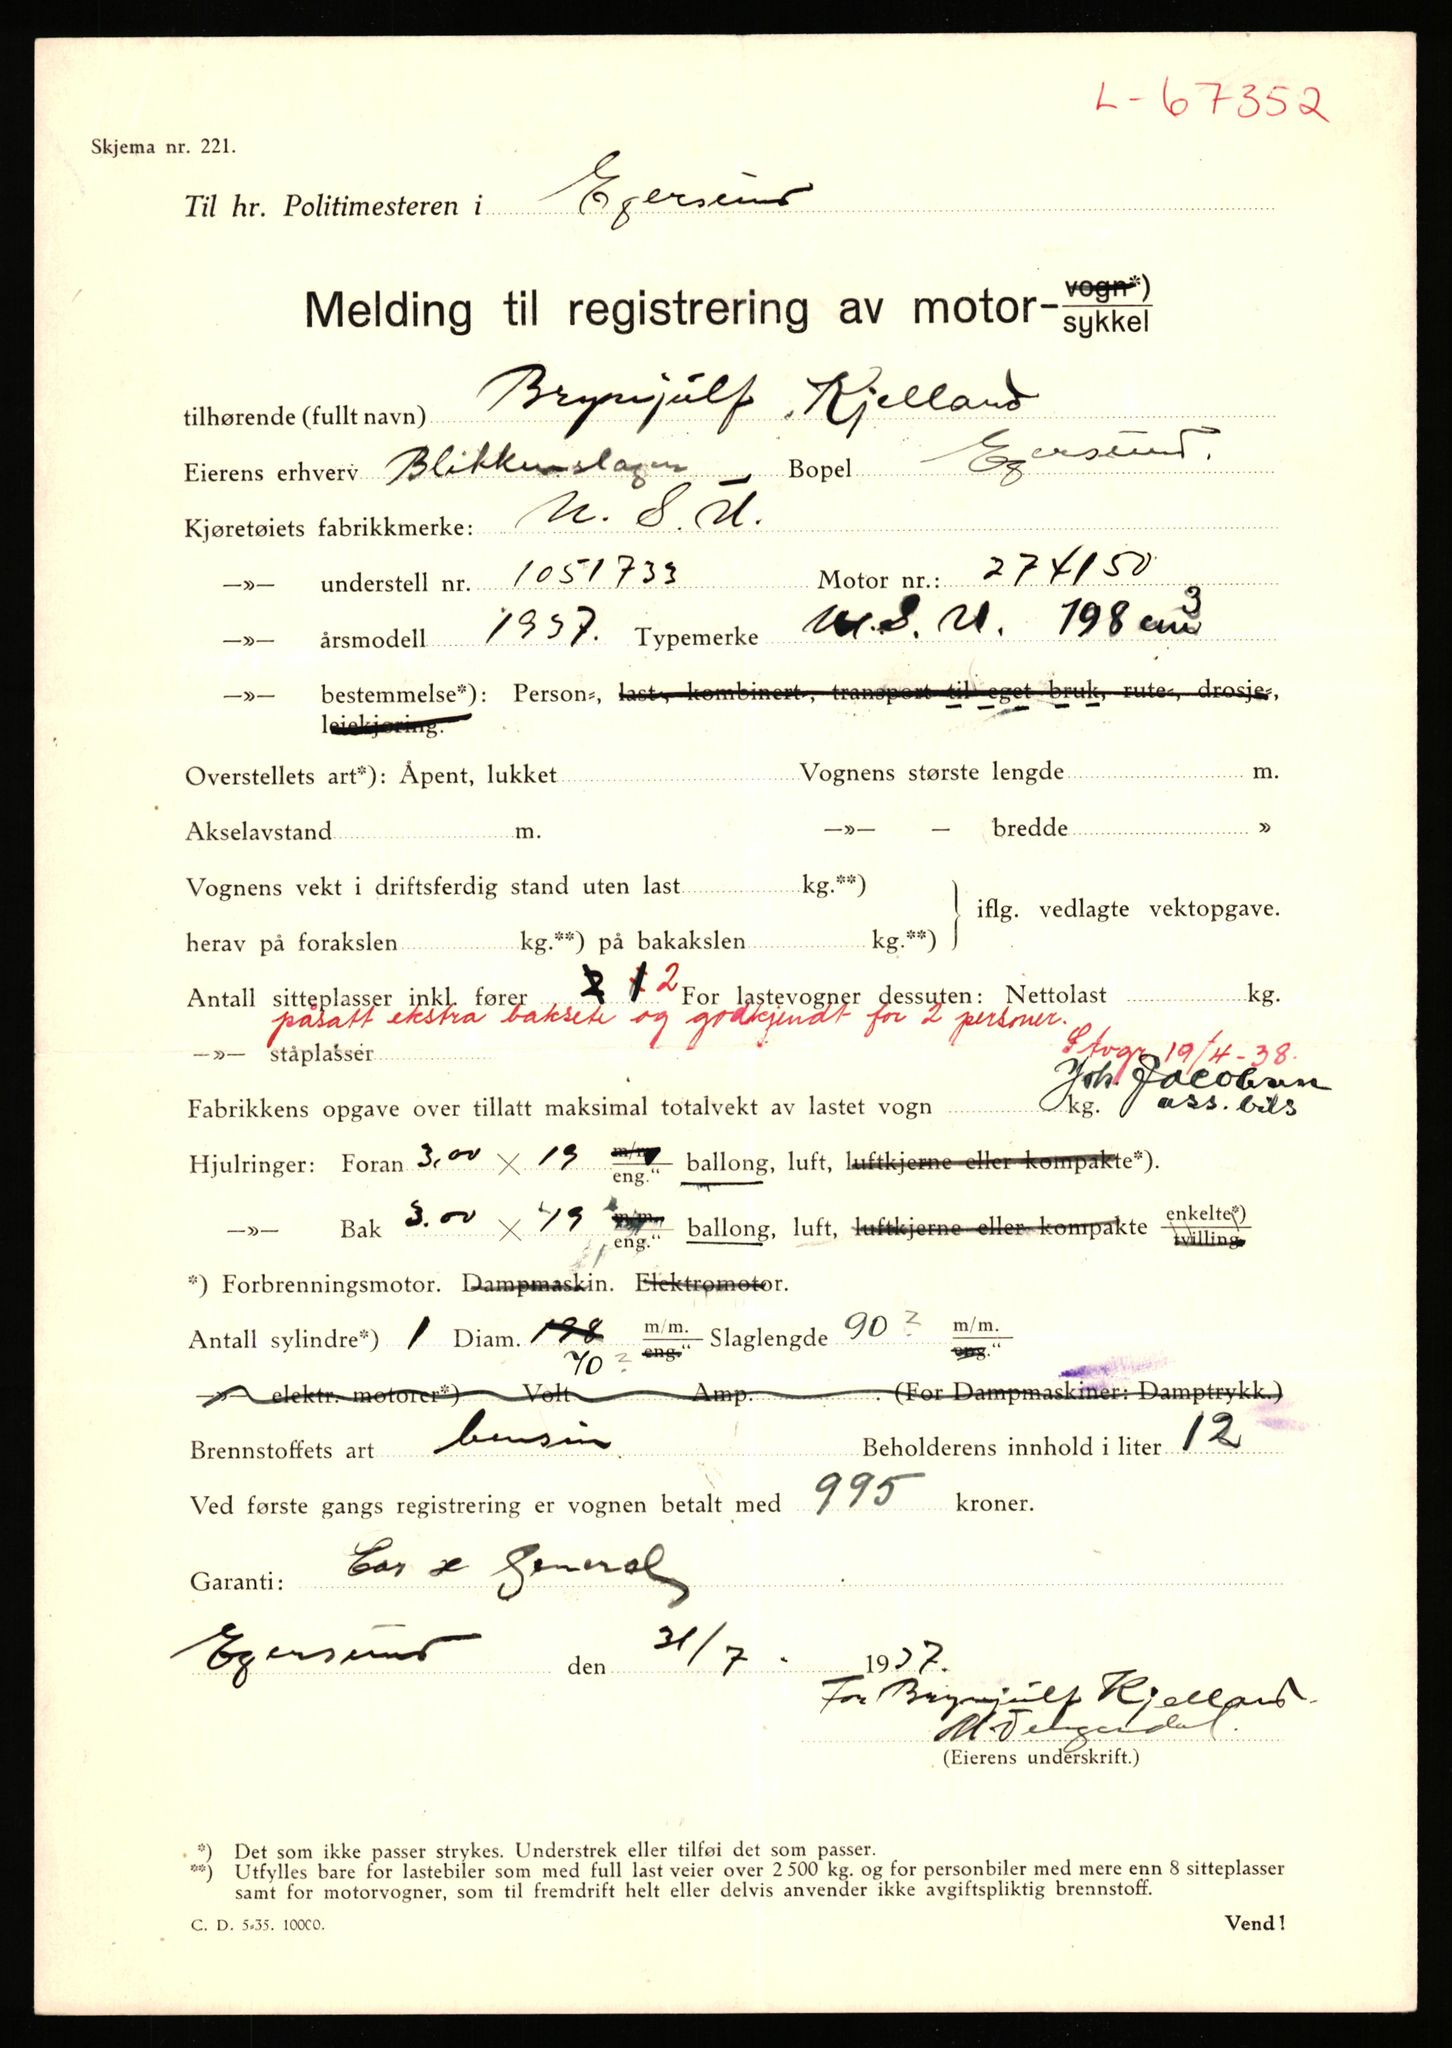 L-67352
Skjema nr. 221.
Til hr. Politimesteren i Egersund
Melding til registrering av motor-vogn*)
sykkel
tilhørende (fullt navn) Brynjulf Kjelland
Eierens erhverv Blikkenslager Bopel Egersund.
Kjøretøiets fabrikkmerke: N. S. U.
—»— understell nr. 1051733 Motor nr.: 274150
—»— årsmodell 1937. Typemerke N. S. U. 198 cm3
—»— bestemmelse*): Person-, last-, kombinert-, transport til eget bruk, rute-, drosje-,
leiekjøring.
Overstellets art*): Åpent, lukket Vognens største lengde m.
Akselavstand m. —»— — bredde »
Vognens vekt i driftsferdig stand uten last kg.**)
iflg. vedlagte vektopgave.
herav på forakslen kg.**) på bakakslen kg.**)
Antall sitteplasser inkl. fører 2 1 2 For lastevogner dessuten: Nettolast kg.
påsatt ekstra baksete og godkjendt for 2 personer.
—»— ståplasser Stvgr 19/4-38.
Joh. Jacobsen
Fabrikkens opgave over tillatt maksimal totalvekt av lastet vogn kg. ass. bils
Hjulringer: Foran 3.00 × 19 m/m eng.“ ballong, luft, luftkjerne eller kompakte*).
—»— Bak 3.00 × 19 m/m. eng.“ ballong, luft, luftkjerne eller kompakte enkelte*) tvilling
*) Forbrenningsmotor. Dampmaskin. Elektromotor.
Antall sylindre*) 1 Diam. 198 m/m. eng.“ Slaglengde 90 ? m/m. eng.“
70 ?
—»— elektr. motorer*) Volt Amp. . (For Dampmaskiner: Damptrykk.)
Brennstoffets art bensin Beholderens innhold i liter 12
Ved første gangs registrering er vognen betalt med 995 kroner.
Garanti: Car & General
Egersund den 31/7 . 1937.
For Brynjulf Kjelland
(Eierens underskrift.)
*) Det som ikke passer strykes. Understrek eller tilføi det som passer.
**) Utfylles bare for lastebiler som med full last veier over 2 500 kg. og for personbiler med mere enn 8 sitteplasser
samt for motorvogner, som til fremdrift helt eller delvis anvender ikke avgiftspliktig brennstoff.
C. D. 5-35. 10000. Vend!